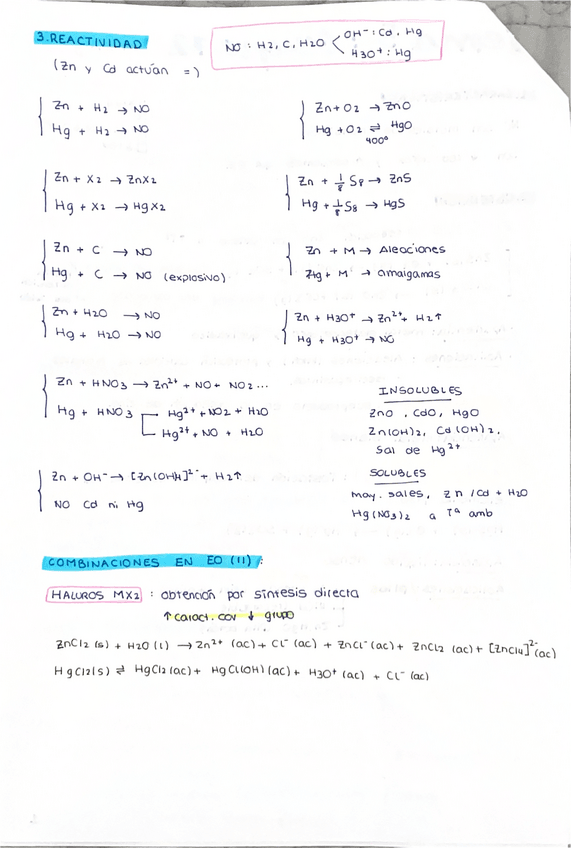 3. REACTIVIDAD
NO : H2, C, H2O < OH⁻ : Cd, Hg
H3O⁺ : Hg
(Zn y Cd actúan =)
Zn + H2 → NO
Hg + H2 → NO
Zn + O2 → ZnO
Hg + O2 ⇌ HgO
400°
Zn + X2 → ZnX2
Hg + X2 → HgX2
Zn + 1/8 S8 → ZnS
Hg + 1/8 S8 → HgS
Zn + C → NO
Hg + C → NO (explosivo)
Zn + M → Aleaciones
Hg + M → amalgamas
Zn + H2O → NO
Hg + H2O → NO
Zn + H3O⁺ → Zn²⁺ + H2↑
Hg + H3O⁺ → NO
Zn + HNO3 → Zn²⁺ + NO + NO2 ...
Hg + HNO3 Hg²⁺ + NO2 + H2O
Hg²⁺ + NO + H2O
INSOLUBLES
ZnO, CdO, HgO
Zn(OH)2, Cd(OH)2,
Sal de Hg²⁺
Zn + OH⁻ → [Zn(OH)4]²⁻ + H2↑
NO Cd ni Hg
SOLUBLES
may. sales, Zn/Cd + H2O
Hg(NO3)2 a Tª amb
COMBINACIONES EN EO (II) :
HALUROS MX2 : obtención por síntesis directa
↑ caract. cov ↓ grupo
ZnCl2 (s) + H2O (l) → Zn²⁺ (ac) + Cl⁻ (ac) + ZnCl⁻ (ac) + ZnCl2 (ac) + [ZnCl4]²⁻ (ac)
HgCl2(s) ⇌ HgCl2 (ac) + HgCl(OH) (ac) + H3O⁺ (ac) + Cl⁻ (ac)